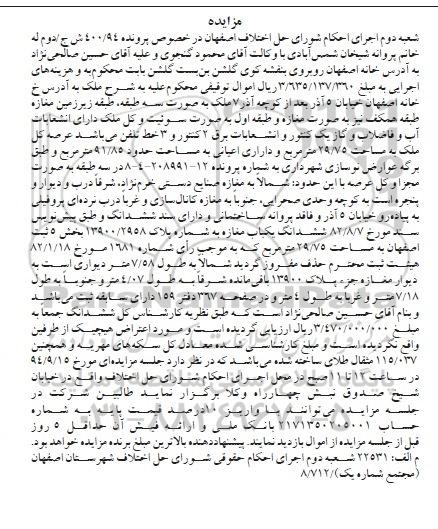 مزایده
شعبه دوم اجرای احکام شورای حل اختلاف اصفهان در خصوص پرونده ۴۰۰/۹۴ ش ح/دوم له
خانم پروانه شیخان شمس‌آبادی با وکالت آقای محمود گنجوی و علیه آقای حسین صالحی‌نژاد
به آدرس خانه اصفهان روبروی بنفشه کوی گلشن بن‌بست گلشن بابت محکوم‌به و هزینه‌های
اجرایی به مبلغ ۳/۶۳۵/۱۳۷/۳۶۰ ریال اموال توقیفی محکوم‌علیه به شرح ملک به آدرس خ
خانه اصفهان خیابان ۵ آذر بعد از کوچه آذر ۷ ملک به صورت سه طبقه، طبقه زیرزمین مغازه
طبقه همکف نیز به صورت مغازه و طبقه اول به صورت سوئیت و کل ملک دارای انشعابات
آب و فاضلاب و گاز یک کنتور و انشعابات برق ۲ کنتور و ۳ خط تلفن می‌باشد عرصه کل
ملک به مساحت ۲۹/۷۵ مترمربع و دارای اعیانی به مساحت حدود ۹۱/۸۵ مترمربع و طبق
برگه عوارض نوسازی شهرداری به شماره پرونده ۱۲-۲۰۸۹۹۱-۴-۸ در سه طبقه به صورت
مجزا و کل عرصه با این حدود: شمالاً به مغازه صنایع دستی خرم‌نژاد، شرقاً درب و دیوار و
پنجره است به کوچه وحدی صحرایی، جنوباً به مغازه کانال‌سازی و غرباً درب نرده‌ای پروفیلی
به پیاده‌رو خیابان ۵ آذر و فاقد پروانه ساختمانی و دارای سند ششدانگ و طبق پیش‌نویس
سند مورخ ۸۲/۸/۷ ششدانگ یکباب مغازه به شماره پلاک ۱۳۹۰۰/۲۹۵۸ بخش ۵ ثبت
اصفهان به مساحت ۲۹/۷۵ مترمربع که به موجب رأی شماره ۱۶۸۱ مورخ ۸۲/۱/۱۸
هیئت ثبت محترم حذف مفروز گردید شمالاً به طول ۷/۵۸ متر دیواری است به
دیوار مغازه جزء پلاک ۱۳۹۰۰ باقی‌مانده شرقاً به طول ۴/۰۷ متر و جنوباً به طول
۷/۱۸ متر و غرباً به طول ۴ متر و در صفحه ۳۶۷ دفتر ۱۵۹ دارای سابقه ثبت می‌باشد
و بنام آقای حسین صالحی‌نژاد است که طبق نظریه کارشناس کل ششدانگ جمعاً به
مبلغ ۳/۴۷۰/۰۰۰/۰۰۰ ریال ارزیابی گردیده است و مورد اعتراض هیچیک از طرفین
واقع نگردیده است و مبلغ کارشناسی شده معادل کل سکه‌های مهریه و همچنین
۱۱۵/۰۳۷ مثقال طلای ساخته شده می‌باشد که در نظر دارد جلسه مزایده‌ای مورخ ۹۴/۹/۱۵
در ساعت ۱۲ تا ۱۱ صبح در محل اجرای احکام شورای حل اختلاف واقع در خیابان
شیخ صدوق نبش چهارراه وکلا برگزار نماید طالبین شرکت در
جلسه مزایده می‌توانند با واریز ۱۰ درصد قیمت پایه به شماره
حساب ۲۱۷۱۳۵۰۲۰۵۰۰۱ بانک ملی و ارائه فیش آن حداقل ۵ روز
قبل از جلسه مزایده از اموال بازدید نمایند. پیشنهاددهنده بالاترین مبلغ برنده مزایده خواهد بود.
م الف: ۲۲۵۳۱ شعبه دوم اجرای احکام حقوقی شورای حل اختلاف شهرستان اصفهان
(مجتمع شماره یک)/۸/۷۱۲